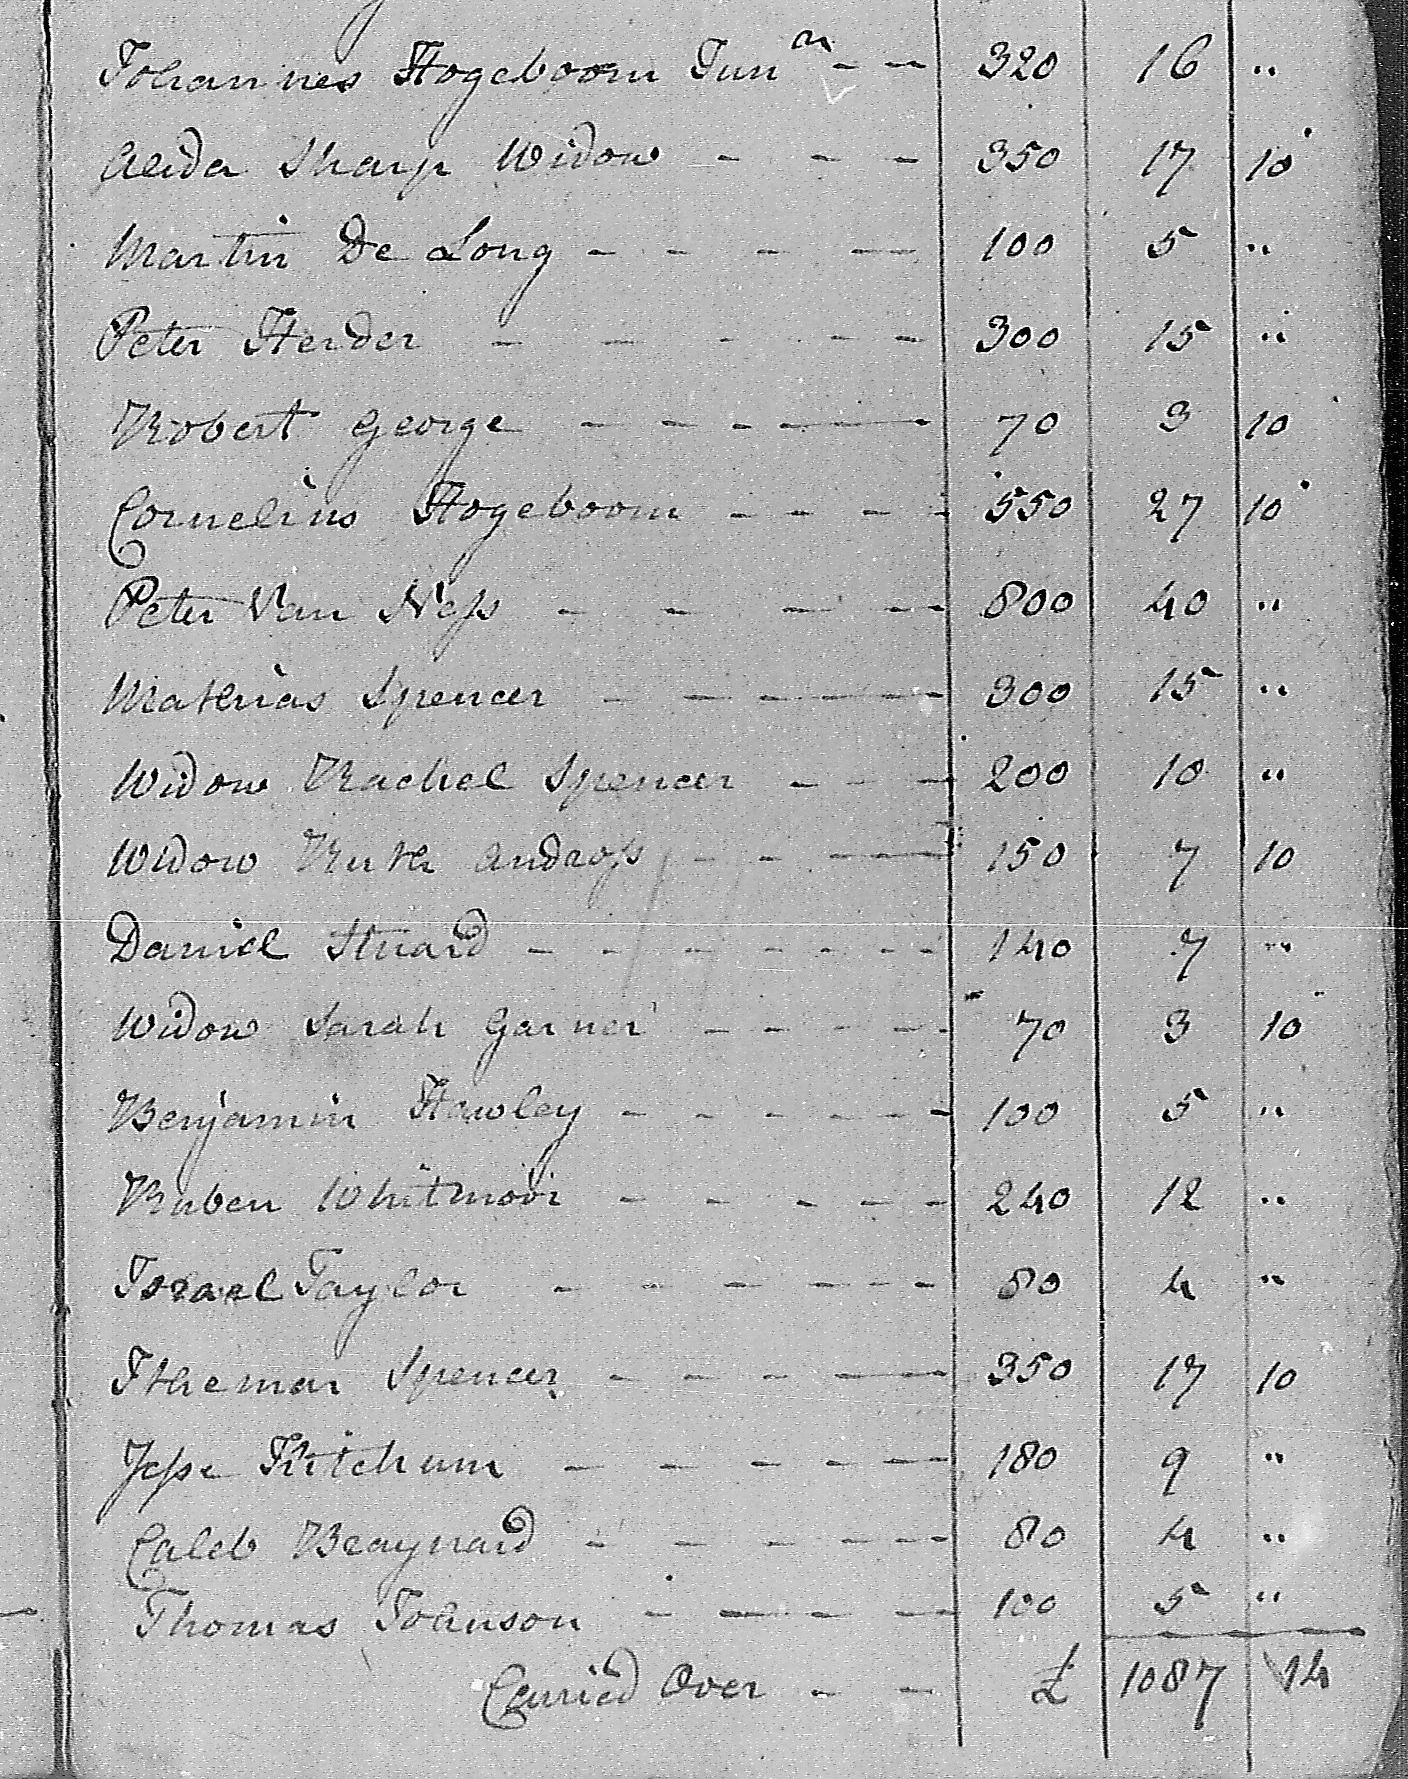 Johannes Hogeboom Junr - - 320 16 "
Alida Sharp Widow - - - 350 17 10
Martin De Long - - - - 100 5 "
Peter Herder - - - - - 300 15 "
Robert George - - - - 70 3 10
Cornelius Hogeboom - - - - 550 27 10
Peter Van Ness - - - - - 800 40 "
Mathias Spencer - - - - - 300 15 "
Widow Rachel Spencer - - - 200 10 "
Widow Ruth Andross - - - 150 7 10
Daniel Stuard - - - - - - 140 7 "
Widow Sarah Garner - - - - 70 3 10
Benjamin Hawley - - - - - 100 5 "
Ruben Whitmoor - - - - - 240 12 "
Israel Taylor - - - - - 80 4 "
Ithemar Spencer - - - - 350 17 10
Jesse Kitchum - - - - - 180 9 "
Caleb Braynard - - - - - 80 4 "
Thomas Johnson - - - - - 100 5 "
Carried Over - - £ 1087 14